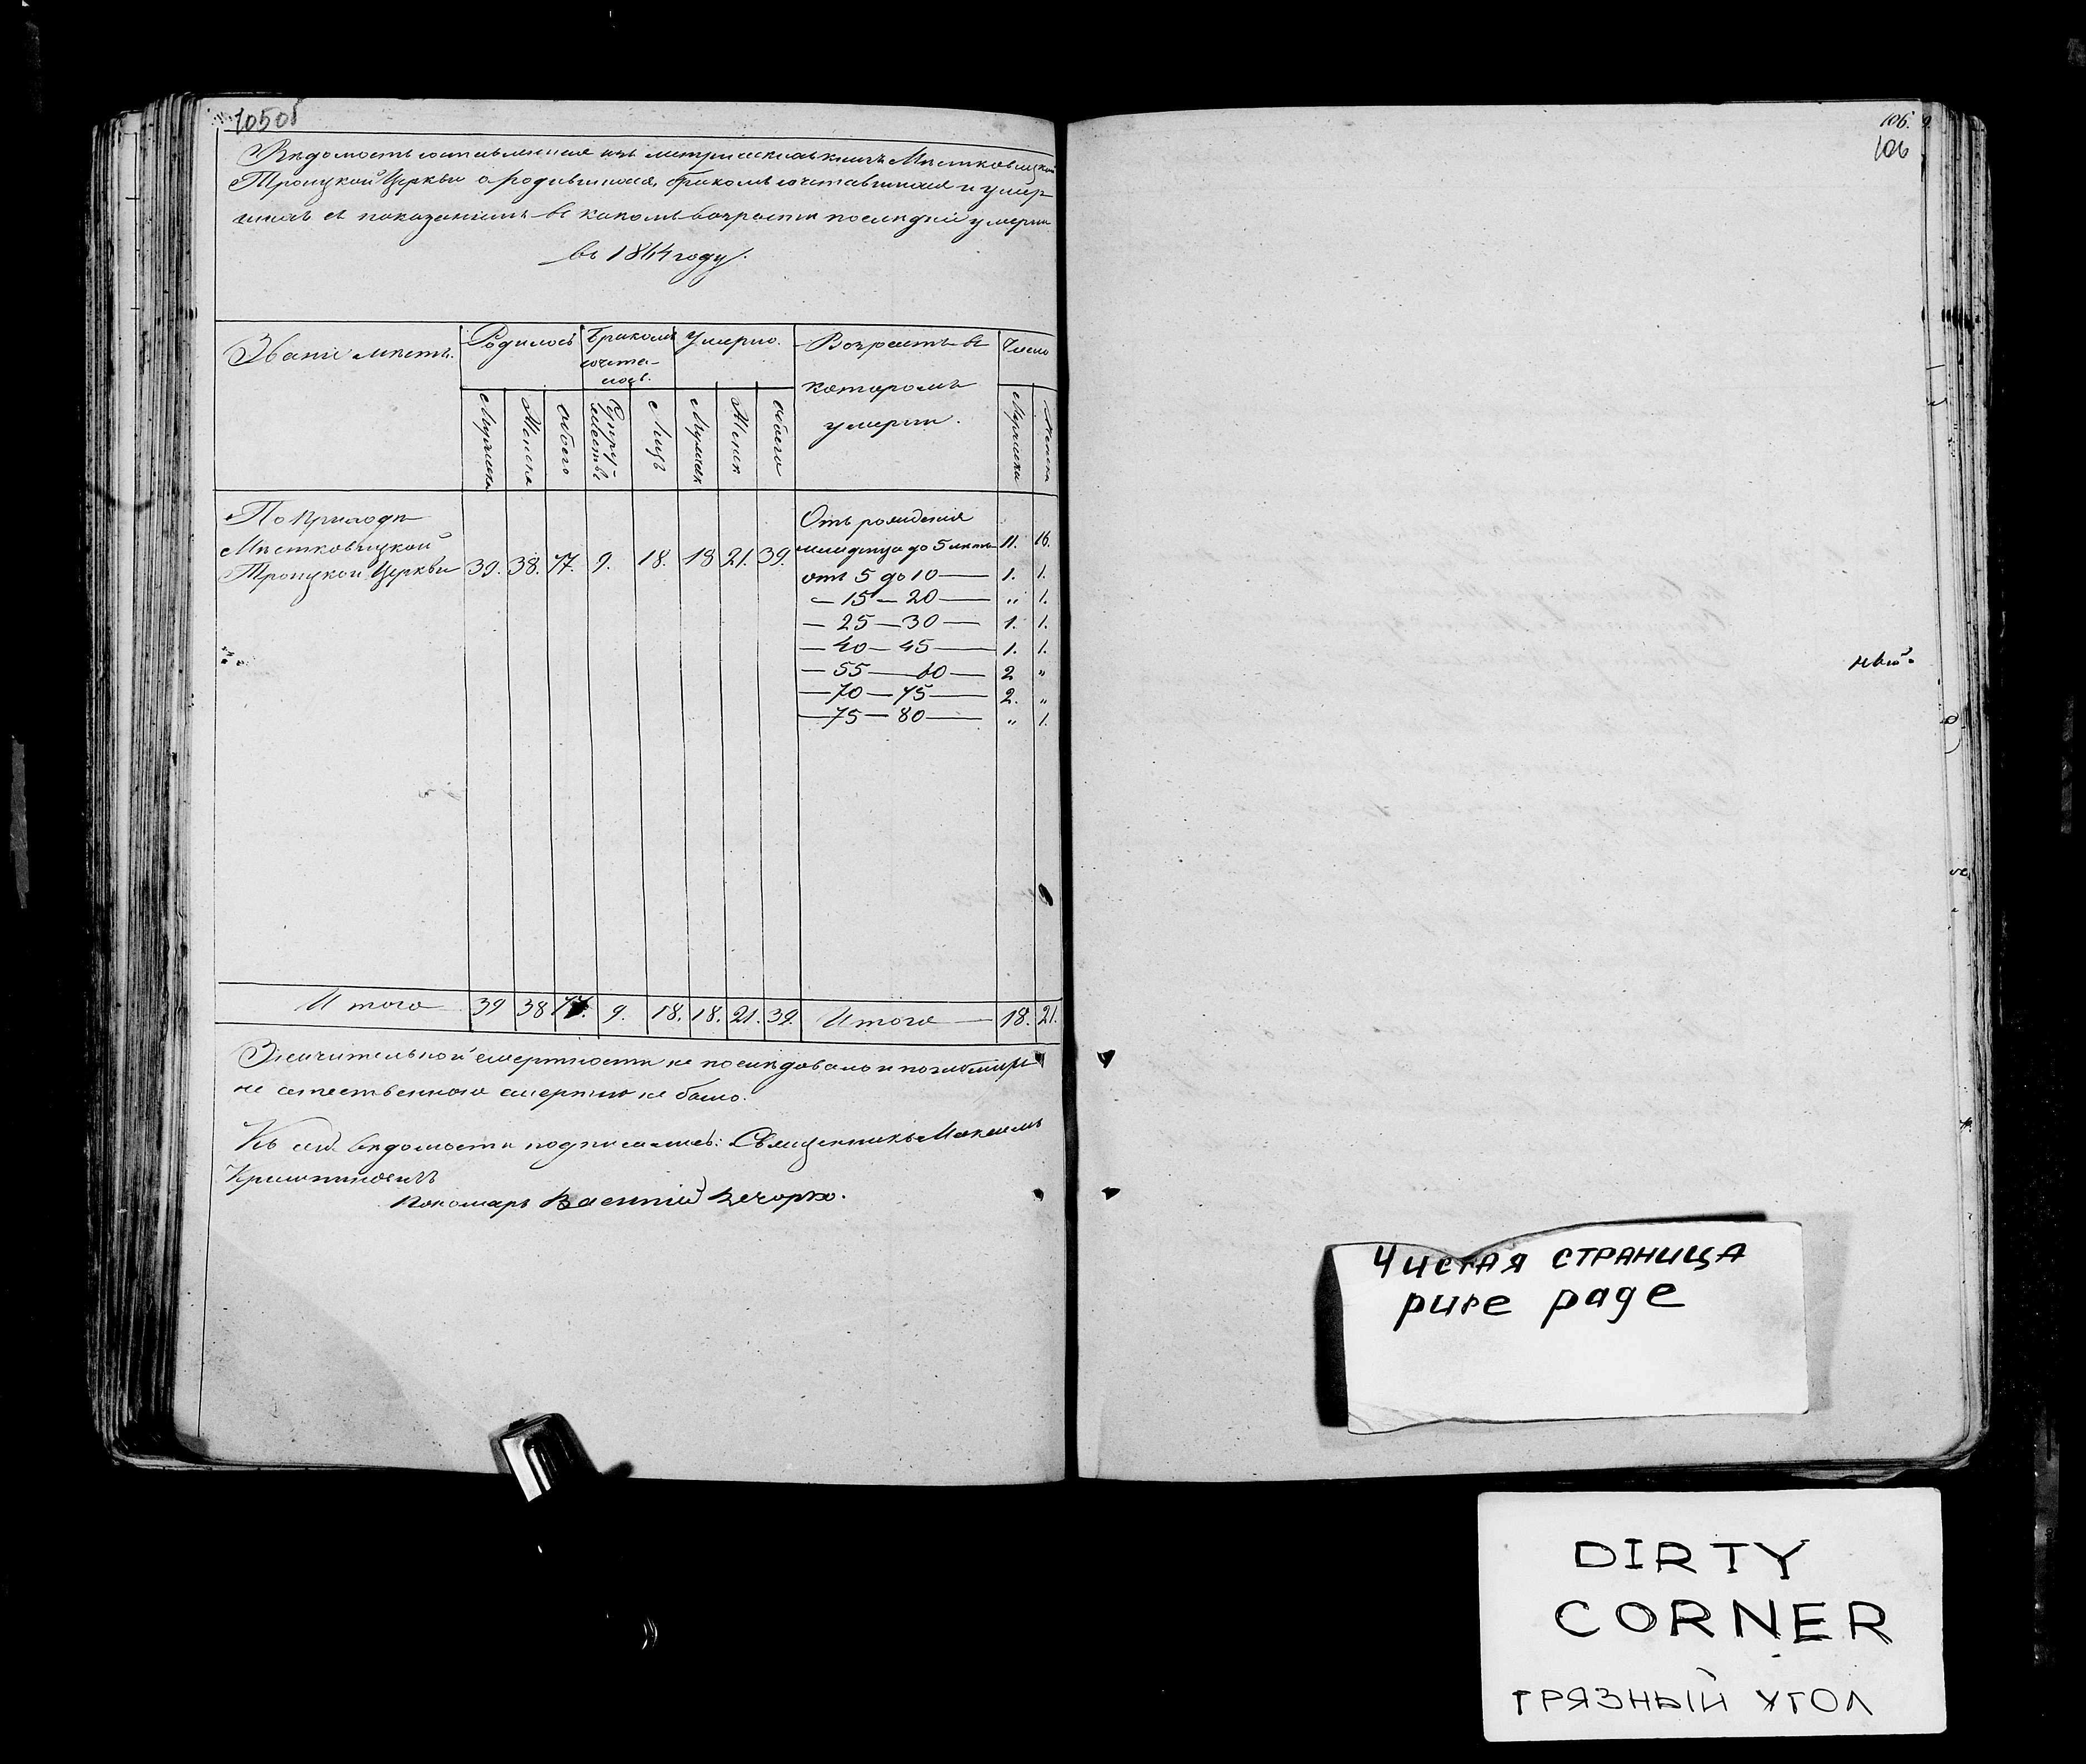 105об
Ведомость составленная изъ метрическихъ книгъ Мѣстковицкой
Троицкой Церкви о родившихся, бракомъ сочетавшихся и умер-
шихъ съ показаніемъ въ какомъ возрастѣ послѣдніи умерли
въ 1844 году.
Званіе мѣстъ. Родилось Бракомъ сочета- лось. Умерло. Возрастъ въ которомъ умерли. Число
Мужеска Женска Обоего Супру- жествъ Лицъ Мужеск Женск Обоего Мужеска Женска
По приходѣ
Мѣстковицкой
Троицкой Церкви 39. 38. 77. 9. 18. 18 21. 39.
Отъ рожденія
младенца до 5 лѣтъ 11. 16.
отъ 5 до 10 — 1. 1.
— 15 — 20 — „ 1.
— 25 — 30 — 1. 1.
— 40 — 45 — 1. 1.
— 55 — 60 — 2 „
— 70 — 75 — 2. „
— 75 — 80 — „ 1.
Итого 39 38 77. 9. 18. 18. 21. 39. Итого — 18. 21.
Значительной смертности не послѣдовало и
не естественною смертію не было.
Къ сей вѣдомости подписались: Священникъ Максимъ
Пономарь Василій
106.
106
Чистая страница
pure page
DIRTY
CORNER
ГРЯЗНЫЙ УГОЛ